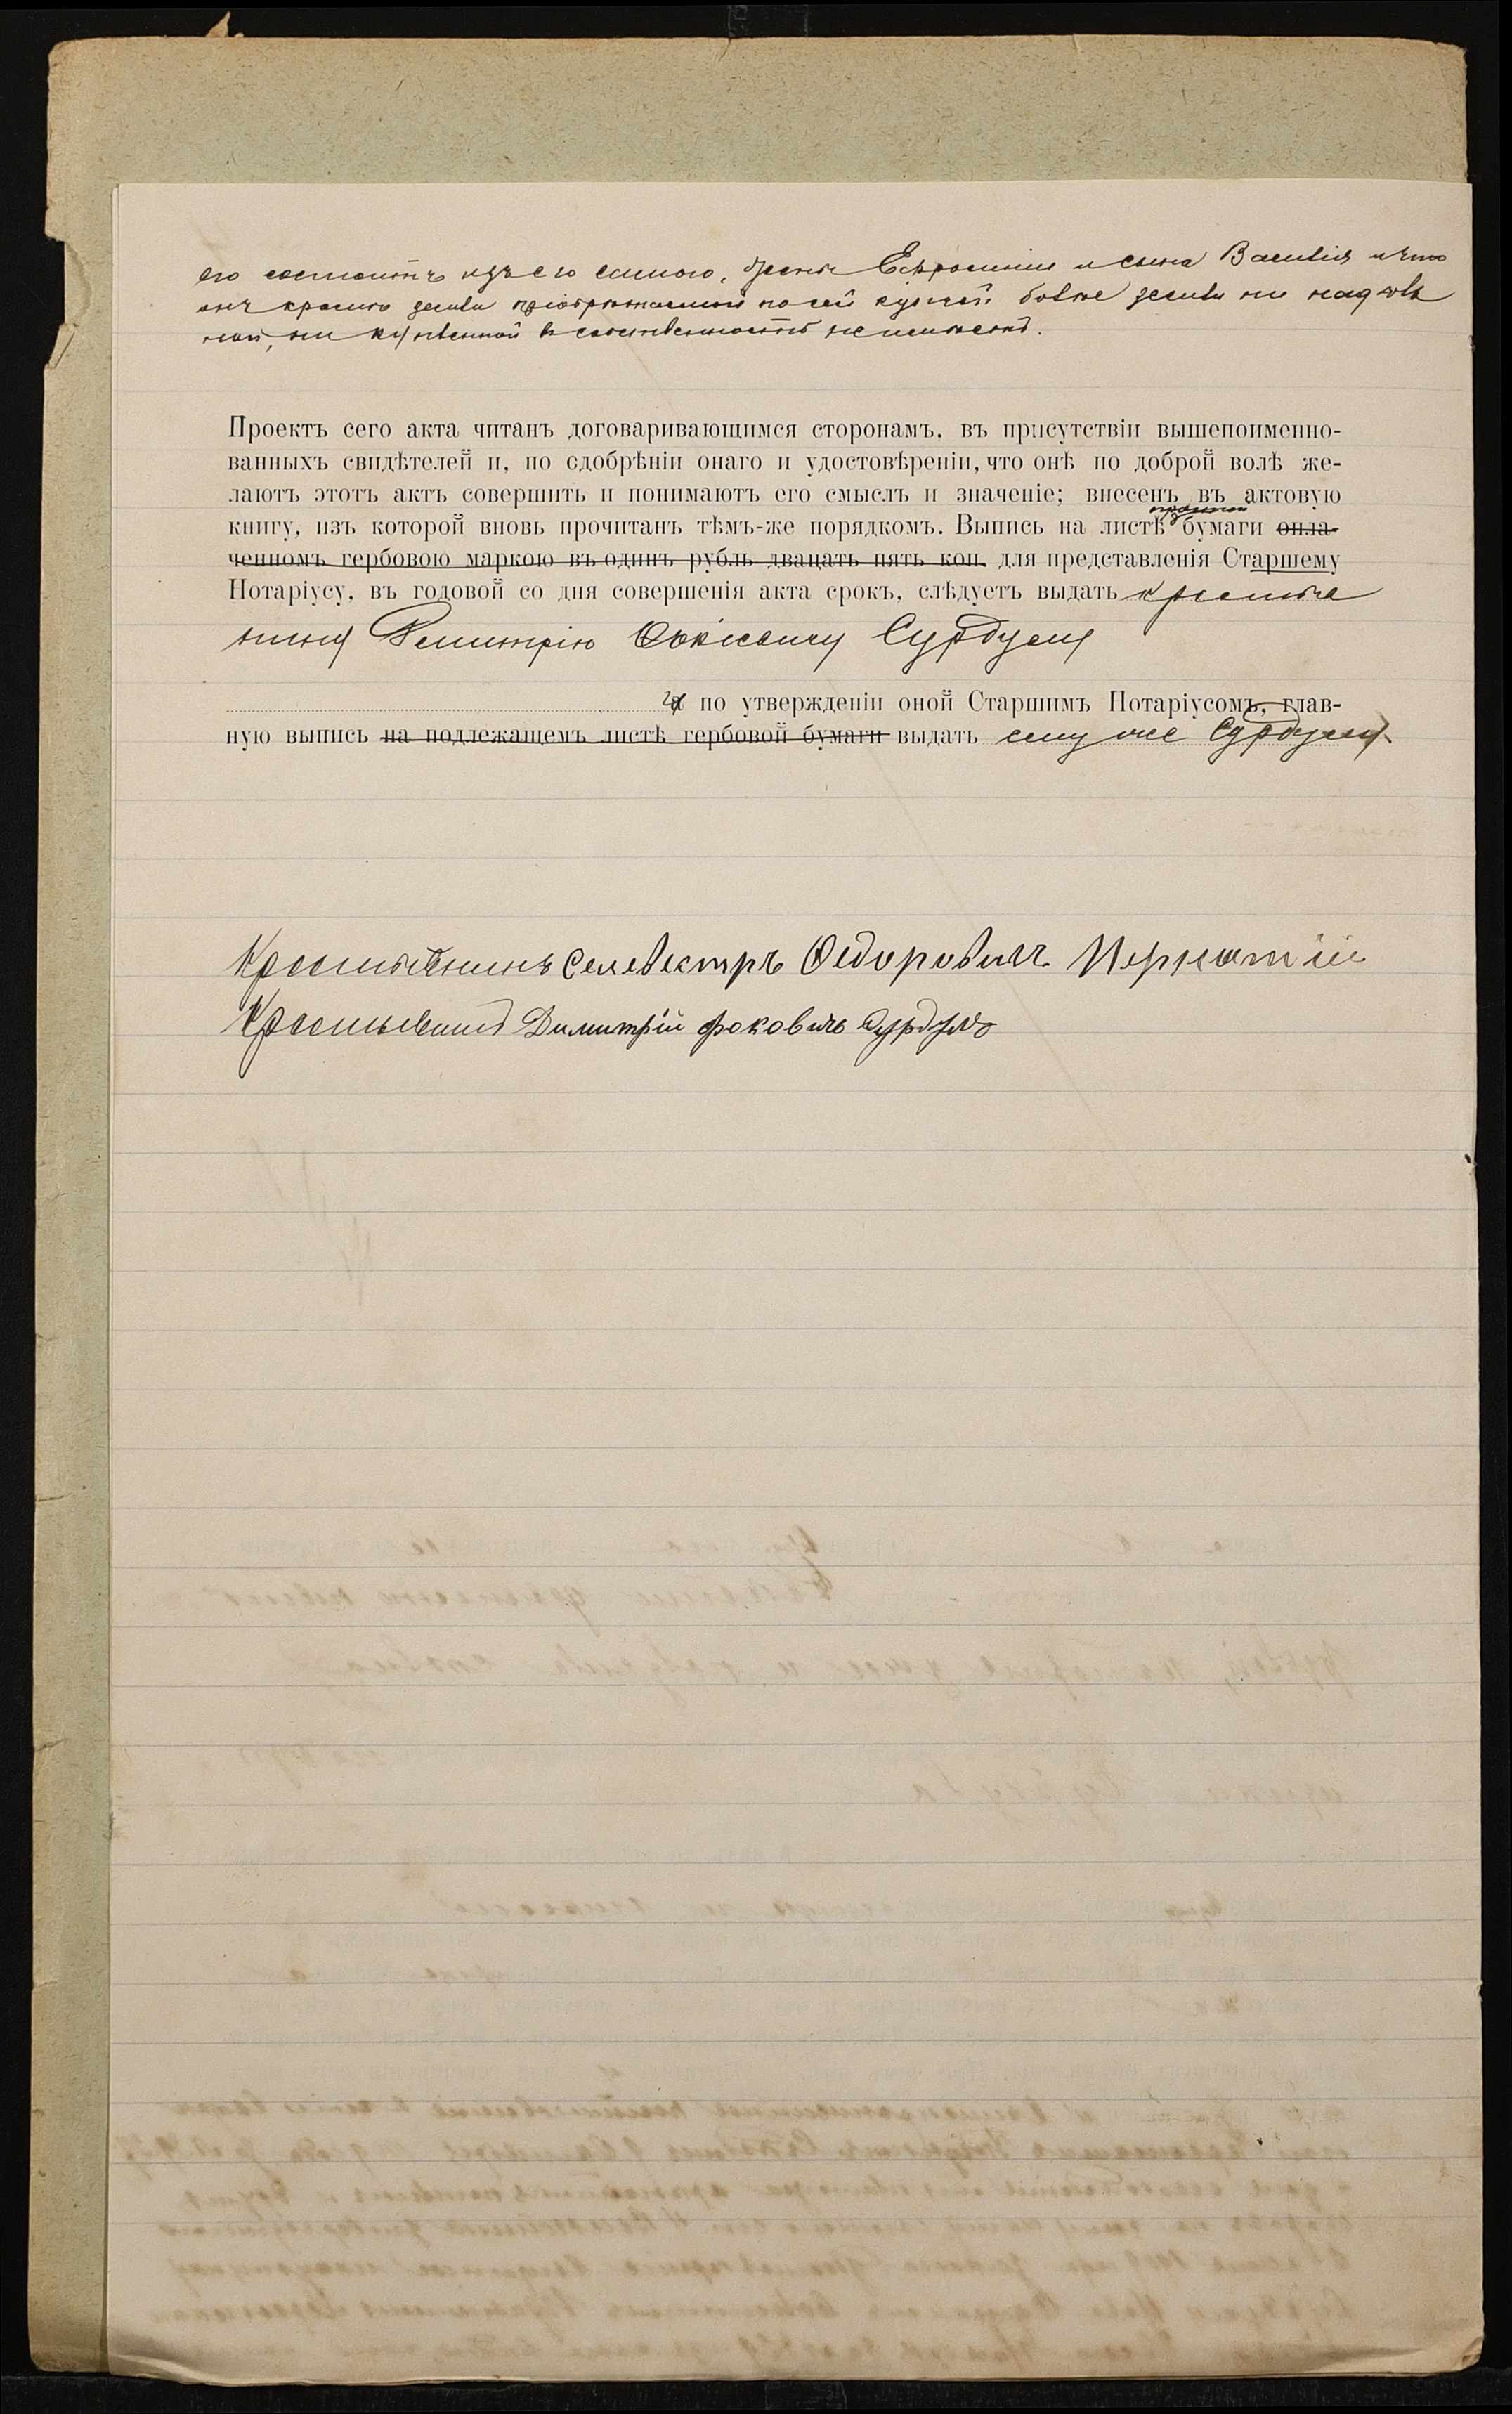 его состоитъ изъ его самого, жены Евфросиніи и сына Василія и что
онъ кромѣ земли пріобрѣтаемой по сей купчей болѣе земли ни надѣль
ной, ни купленной въ собственность не имѣетъ.
Проектъ сего акта читанъ договаривающимся сторонамъ. въ присутствіи вышепоименно-
ванныхъ свидѣтелей и, по одобрѣніи онаго и удостовѣреніи, что онѣ по доброй волѣ же-
лаютъ этотъ актъ совершить и понимаютъ его смыслъ и значеніе; внесенъ въ актовую
простой
книгу, изъ которой вновь прочитанъ тѣмъ-же порядкомъ. Выпись на листѣ бумаги опла-
ченномъ гербовою маркою въ одинъ рубль двацать пять коп. для представленія Старшему
Нотаріусу, въ годовой со дня совершенія акта срокъ, слѣдуетъ выдать крестья
нину Димитрію Фокіевичу Сурдулу
а по утвержденіи оной Старшимъ Нотаріусомъ, глав-
ную выпись на подлежащемъ листѣ гербовой бумаги выдать ему же Сурдулу.
Крестьянинъ Селевестръ Ѳедоровичъ
Крестьянинъ Димитрій Фоковичъ Сурдулъ